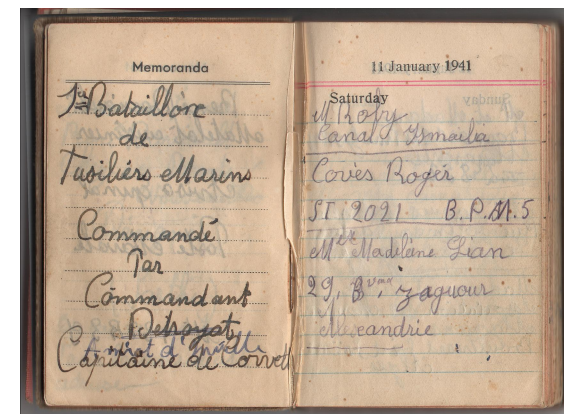 Memoranda
1er Bataillon
de
Fusiliers Marins
Commandé
Par
Commandant
Detroyat
Capitaine de Corvett
11 January 1941
Saturday
M Roby
Canal Ismailia
Covès Roger
2021 B.P.M.5
Madeleine
29, Zaguour
Alexandrie